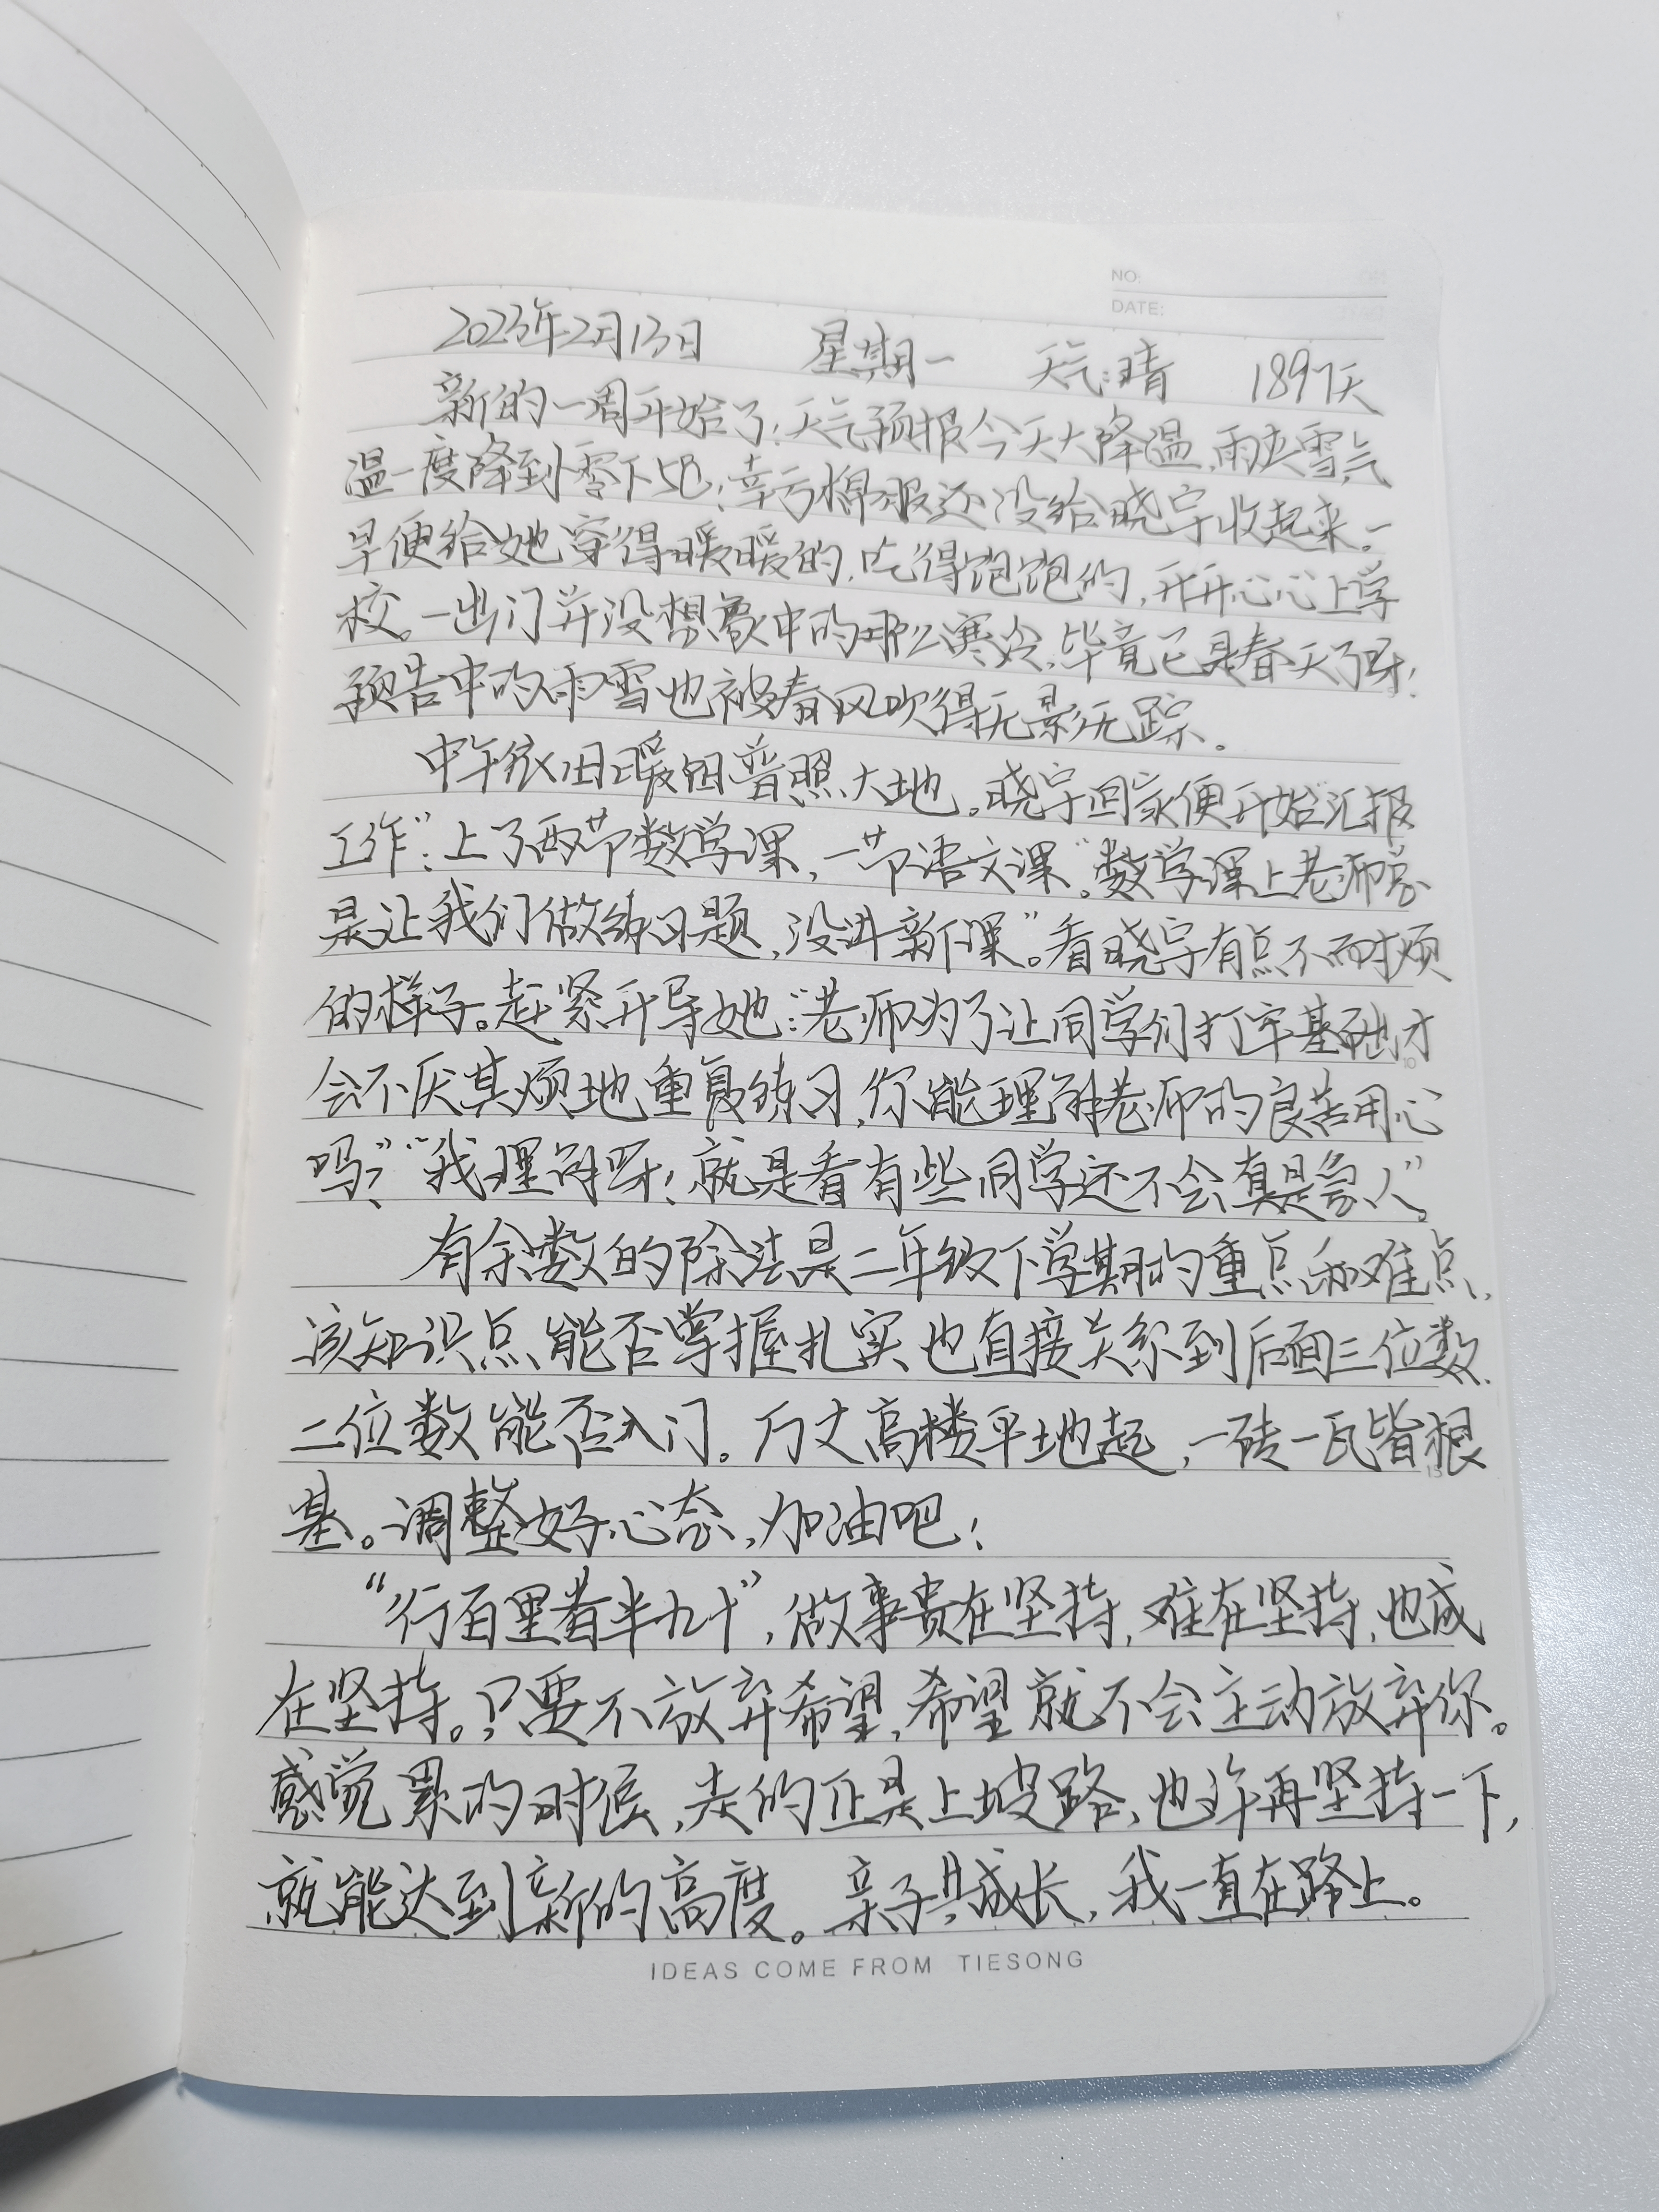 NO:
DATE:
2023年2月13日 星期一 天气:晴 1897天
新的一周开始了!天气预报今天大降温,雨夹雪,气
温一度降到零下5℃!幸亏棉服还没给晓宇收起来。一
早便给她穿得暖暖的,吃得饱饱的,开开心心上学
校。一出门并没想象中的那么寒冷,毕竟已是春天了呀!
预告中的雨雪也被春风吹得无影无踪。
中午依旧暖阳普照大地。晓宇回家便开始“汇报
工作”:上了两节数学课,一节语文课。“数学课上老师总
是让我们做练习题,没讲新课”。看晓宇有点不耐烦
的样子。赶紧开导她:“老师为了让同学们打牢基础才
会不厌其烦地重复练习,你能理解老师的良苦用心
吗?”“我理解呀!就是看有些同学还不会,真是急人”。
有余数的除法是二年级下学期的重点和难点,
该知识点能否掌握扎实也直接关系到后面三位数、
二位数能否入门。万丈高楼平地起,一砖一瓦皆根
基。调整好心态,加油吧!
“行百里者半九十”,做事贵在坚持,难在坚持,也成
在坚持。只要不放弃希望,希望就不会主动放弃你。
感觉累的时候,走的正是上坡路,也许再坚持一下,
就能达到新的高度。亲子共成长,我一直在路上。
10
15
IDEAS COME FROM TIESONG